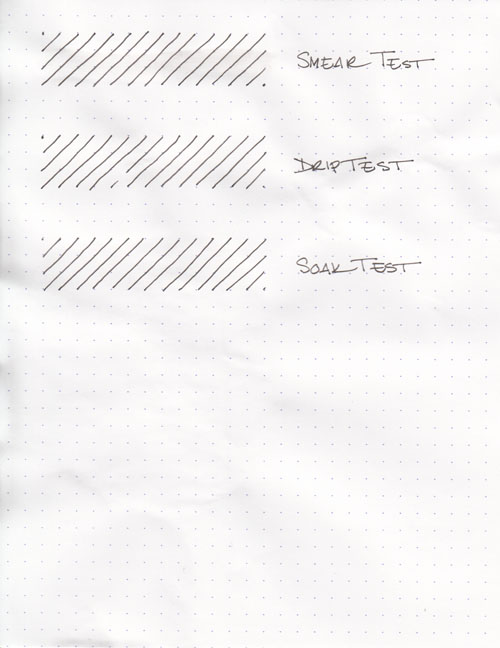 Smear Test
Drip Test
Soak Test